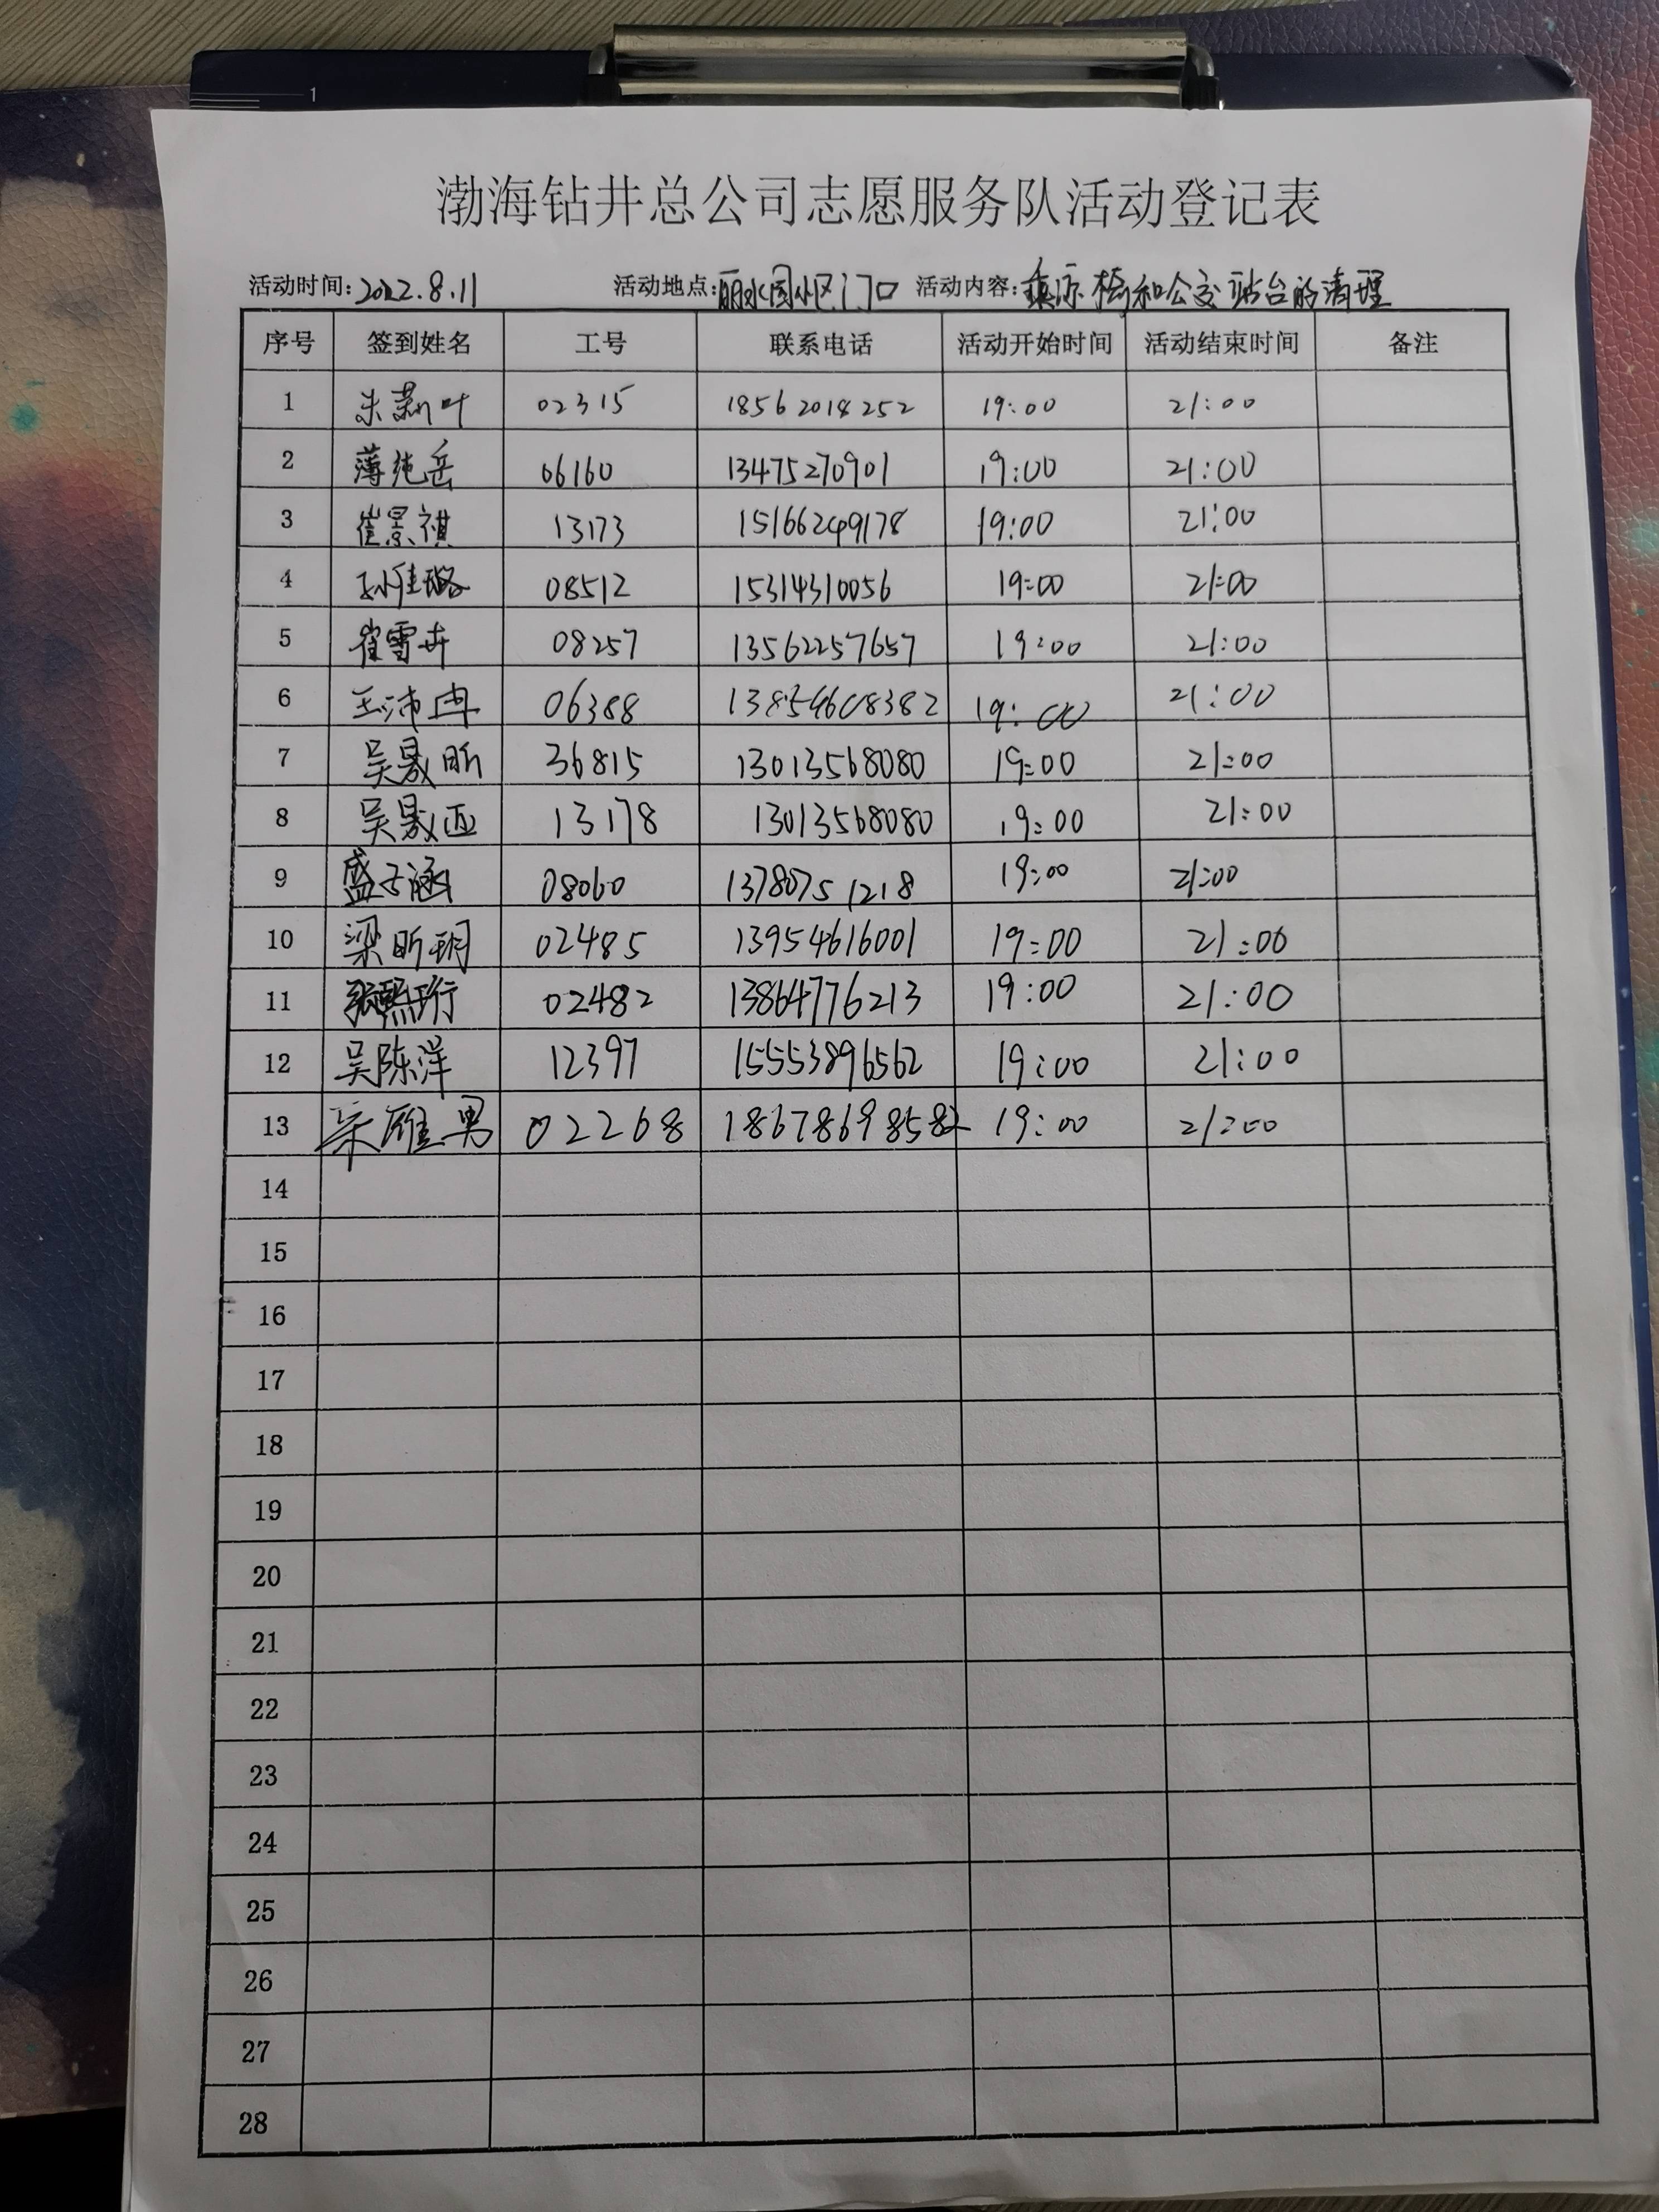 1
渤海钻井总公司志愿服务队活动登记表
活动时间:2022.8.11 活动地点:丽水园小区门口 活动内容: 桥和公交站台的清理
序号 签到姓名 工号 联系电话 活动开始时间 活动结束时间 备注
1 02315 18562018252 19:00 21:00
2 薄纯岳 06160 13475270901 19:00 21:00
3 崔景祺 13173 15166249178 19:00 21:00
4 孙佳璐 08512 15314310056 19:00 21:00
5 崔雪卉 08257 13562257657 19:00 21:00
6 王沛冉 06388 13854608382 19:00 21:00
7 吴晟昕 36815 13013568080 19:00 21:00
8 吴晟 13178 13013568080 19:00 21:00
9 盛子涵 08060 13780751218 19:00 21:00
10 梁昕玥 02485 13954616001 19:00 21:00
11 张熙珩 02482 13864776213 19:00 21:00
12 吴陈洋 12397 15553896562 19:00 21:00
13 宋雁男 02268 18678698582 19:00 21:00
14
15
16
17
18
19
20
21
22
23
24
25
26
27
28